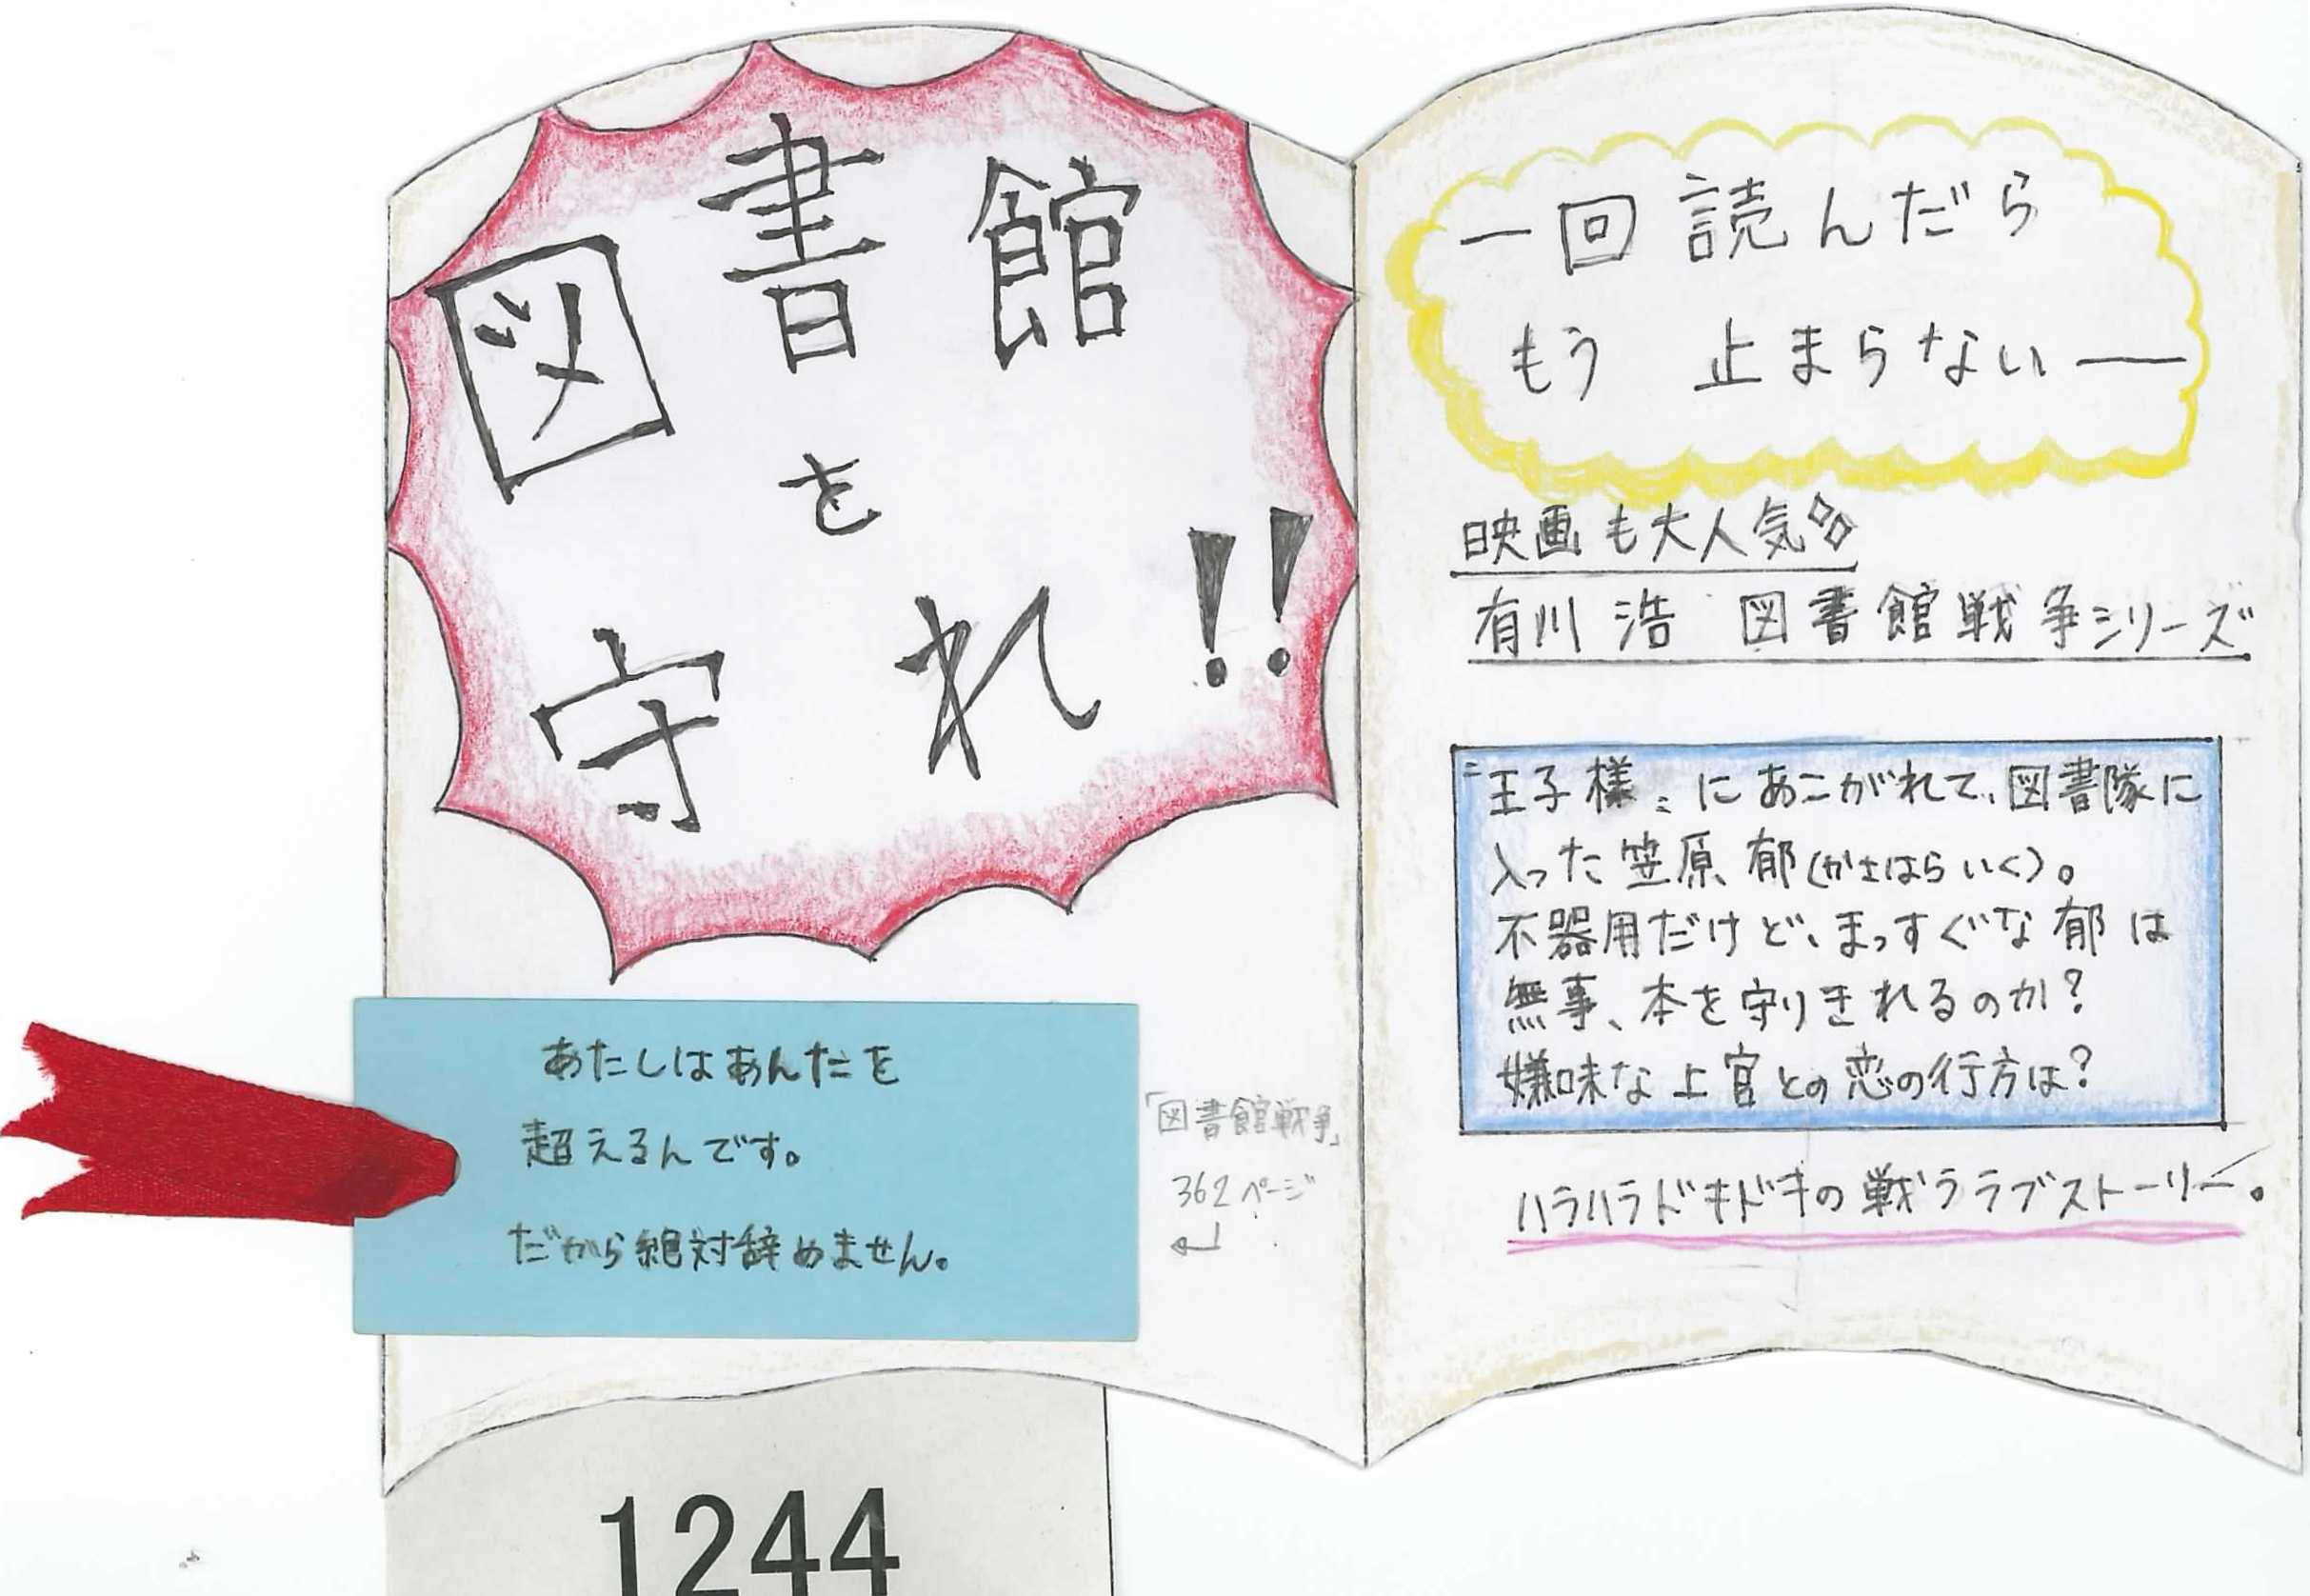 図書館
を
守れ!!
あたしはあんたを
超えるんです。
だから絶対辞めません。
「図書館戦争」
362ページ
1244
一回読んだら
もう 止まらない―
映画も大人気
有川 浩 図書館戦争シリーズ
"王子様"にあこがれて、図書隊に
入った笠原 郁(かさはらいく)。
不器用だけど、まっすぐな郁は
無事、本を守りきれるのか?
嫌味な上官との恋の行方は?
ハラハラドキドキの戦うラブストーリー。